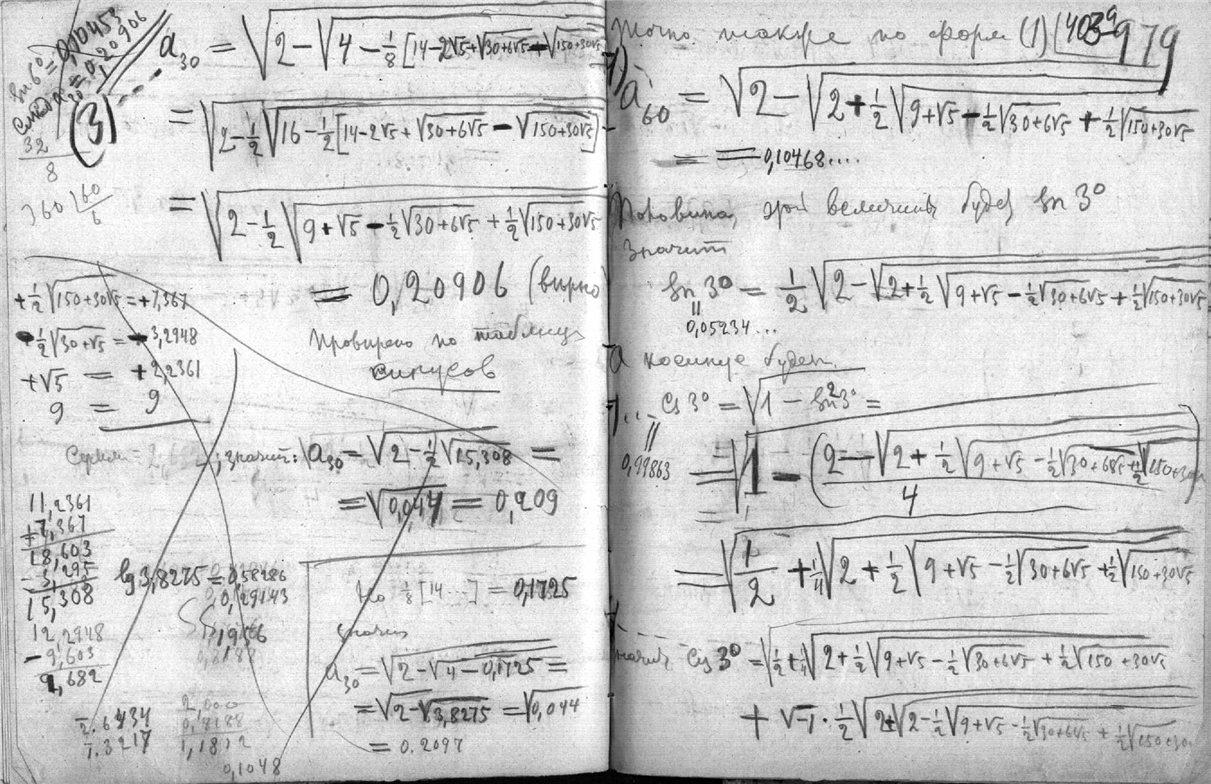 sn 6° = 0,10453
0,20906
(3)
32
8
360 | 60
6
a₃₀ = √(2 − √(4 − 1/8 [14 − 2√5 + √(30+6√5) − √(150+30√5)
= √(2 − 1/2 √(16 − 1/2 [14 − 2√5 + √(30+6√5) − √(150+30√5)]
= √(2 − 1/2 √(9 + √5 − 1/2 √(30+6√5) + 1/2 √(150+30√5)
= 0,20906 (вирно
Провирено по таблице
синусов
+ 1/2 √(150+30√5) = +7,367
− 1/2 √(30+√5) = −3,2948
+√5 = +2,2361
9 = 9
значит: a₃₀ = √(2 − 1/2 √15,308) =
= √0,044 = 0,209
11,2361
+7,367
18,603
−3,295
15,308
12,2948
−9,603
9,682
lg 3,8275 = 0,58286
0,29143
1,9566
Но 1/8 [14 ...] = 0,1725
значит
a₃₀ = √(2 − √(4 − 0,1725)) =
= √(2 − √3,8275) = √0,044
= 0.2097
2.6434
7.3217
2,000
0,8188
1,1812
0,1048
Точно также по форм (1) 4039 979
a₆₀ = √(2 − √(2 + 1/2 √(9 + √5 − 1/2 √(30+6√5) + 1/2 √(150+30√5)
= = 0,10468....
Половина этой величины будет sn 3°
Значит
sn 3° = 1/2 √(2 − √(2 + 1/2 √(9 + √5 − 1/2 √(30+6√5) + 1/2 √(150+30√5)
0,05234...
А косинус будет
Cs 3° = √(1 − sn² 3°) =
0,99863
= √(1 − (2 − √(2 + 1/2 √(9 + √5 − 1/2 √(30+6√5) + 1/2 √(150+30√5)
4
= √(1/2 + 1/4 √(2 + 1/2 √(9 + √5 − 1/2 √(30+6√5) + 1/2 √(150+30√5)
значит Cs 3° = √(1/2 + 1/4 √(2 + 1/2 √(9 + √5 − 1/2 √(30+6√5) + 1/2 √(150+30√5)
+ √−1 · 1/2 √(2 ± √(2 − 1/2 √(9 + √5 − 1/2 √(30+6√5) + 1/2 √(150+30